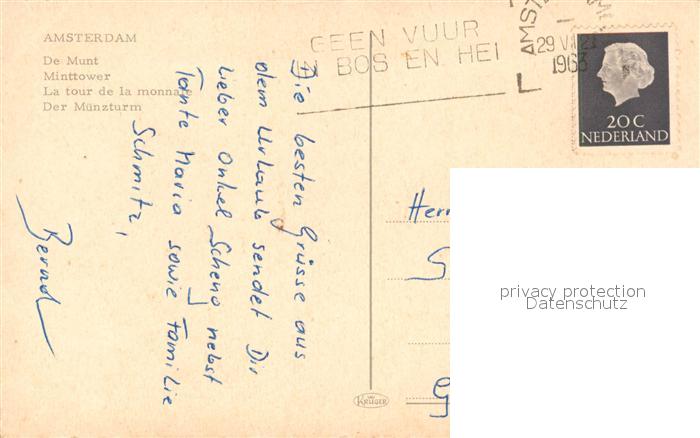 AMSTERDAM
De Munt
Minttower
La tour de la monnaie
Der Münzturm
GEEN VUUR
BOS EN HEI
29 VII
1963
20 C
NEDERLAND
Die besten Grüsse aus
dem Urlaub sendet Dir
lieber Onkel nebst
Tante Maria sowie Familie
Schmitz,
Bernd
Herr
KRÜGER
privacy protection
Datenschutz